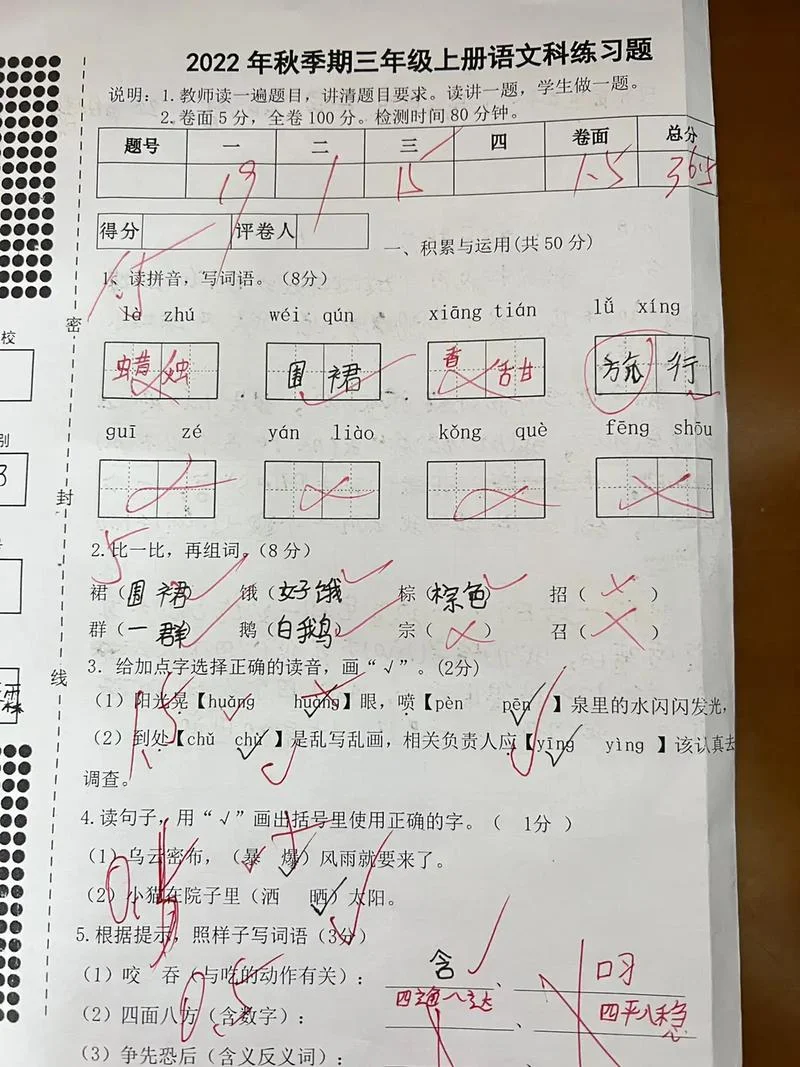 2022年秋季期三年级上册语文科练习题
说明：1.教师读一遍题目，讲清题目要求。读讲一题，学生做一题。
2.卷面5分，全卷100分。检测时间80分钟。
题号 一 二 三 四 卷面 总分
19 1 15 1.5 36.5
得分 评卷人
一、积累与运用(共 50 分)
1、读拼音，写词语。（8分）
là zhú wéi qún xiāng tián lǚ xíng
蜡烛 围裙 香甜 旅行
guī zé yán liào kǒng què fēng shōu
2.比一比，再组词。（8 分）
裙（围裙） 饿（好饿） 棕（棕色） 招（ ）
群（一群） 鹅（白鹅） 宗（ ） 召（ ）
3. 给加点字选择正确的读音，画“√”。(2分)
（1）阳光晃【huǎng huàng】眼，喷【pèn pēn】泉里的水闪闪发光，
（2）到处【chǔ chù】是乱写乱画，相关负责人应【yīng yìng】该认真去
调查。
4.读句子，用“√”画出括号里使用正确的字。（ 1分 ）
（1）乌云密布，（暴 爆）风雨就要来了。
（2）小猫在院子里（洒 晒）太阳。
5.根据提示，照样子写词语（3分）
（1）咬 吞（与吃的动作有关）： 含 、
（2）四面八方（含数字）： 四通八达 、 四平八稳
（3）争先恐后（含义反义词）：
密
封
线
校
别